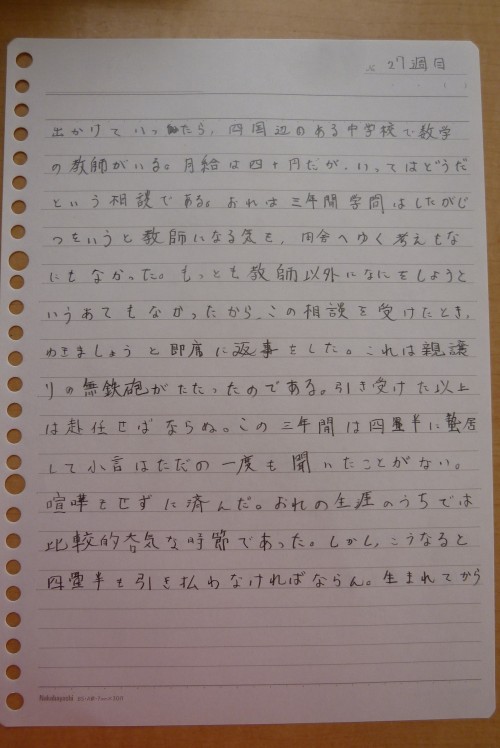 × 27週目
出かけていったら、四国辺のある中学校で数学
の教師がいる。月給は四十円だが、いってはどうだ
という相談である。おれは三年間学問はしたがじ
つをいうと教師になる気も、田舎へゆく考えもな
にもなかった。もっとも教師以外になにをしようと
いうあてもなかったから、この相談を受けたとき、
ゆきましょうと即席に返事をした。これは親譲
りの無鉄砲がたたったのである。引き受けた以上
は赴任せばならぬ。この三年間は四畳半に蟄居
して小言はただの一度も聞いたことがない。
喧嘩もせずに済んだ。おれの生涯のうちでは
比較的呑気な時節であった。しかし、こうなると
四畳半も引き払わなければならん。生まれてから
Nakabayashi